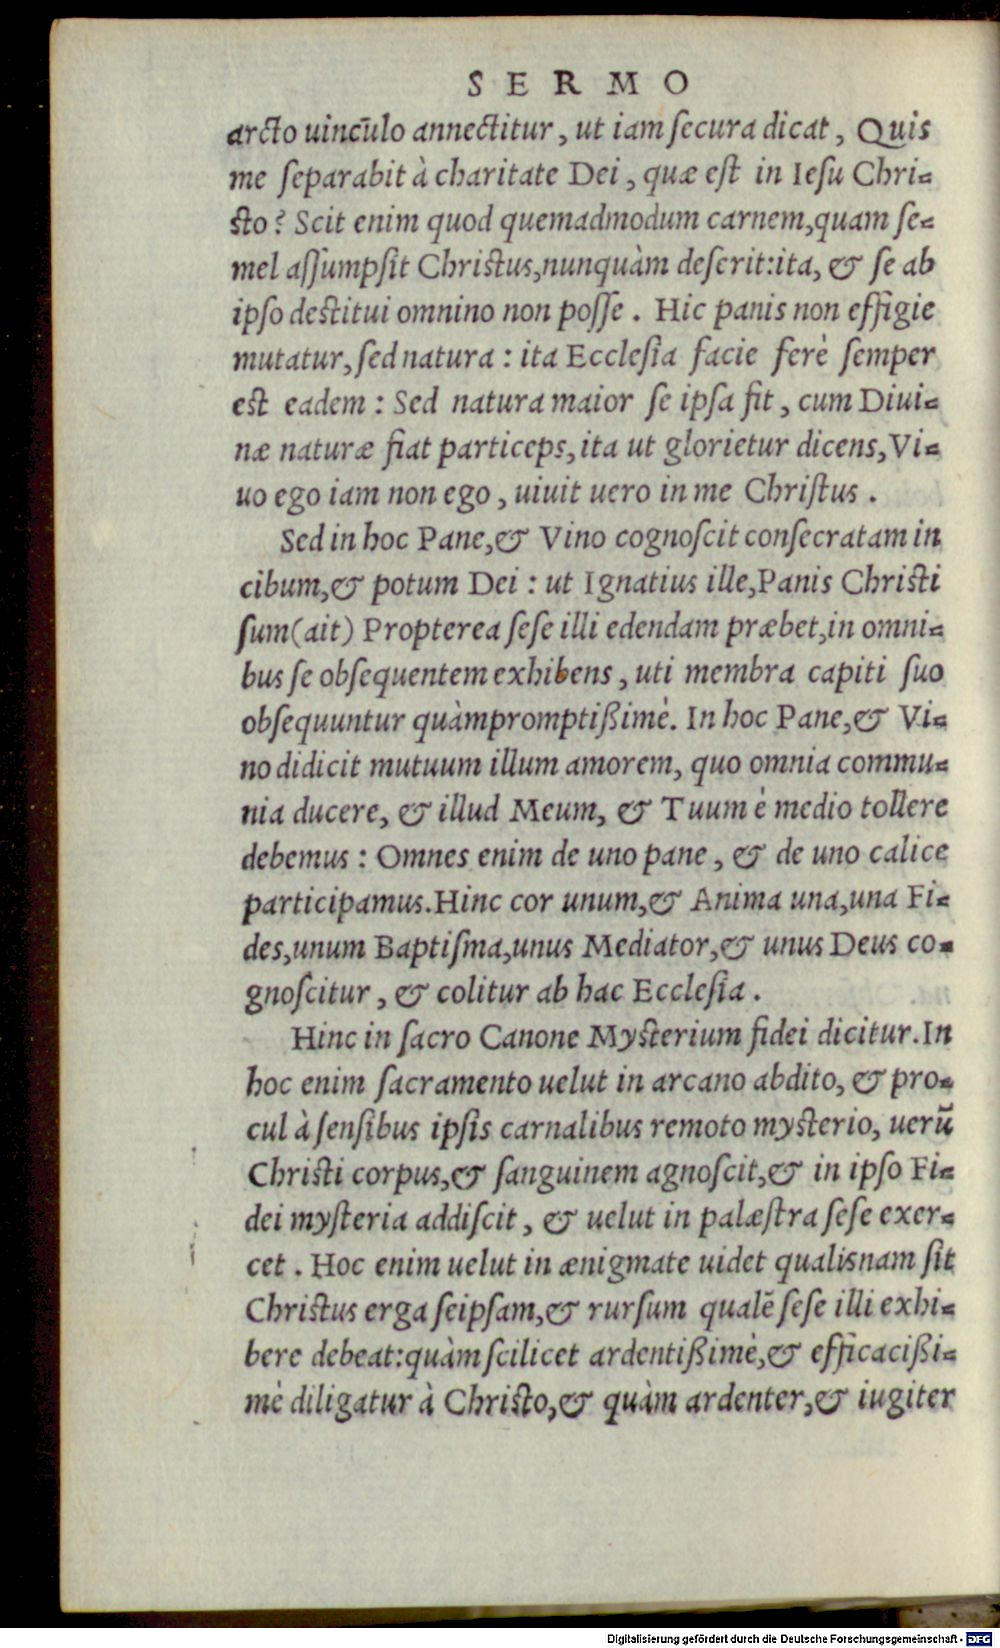 SERMO
arcto uincūlo annectitur, ut iam ſecura dicat, Quis
me ſeparabit à charitate Dei, quæ eſt in Ieſu Chri-
ſto? Scit enim quod quemadmodum carnem, quam ſe-
mel aſſumpſit Chriſtus, nunquàm deſerit: ita, & ſe ab
ipſo deſtitui omnino non poſſe. Hic panis non effigie
mutatur, ſed natura: ita Eccleſia facie ferè ſemper
eſt eadem: Sed natura maior ſe ipſa fit, cum Diui-
næ naturæ fiat particeps, ita ut glorietur dicens, Vi-
uo ego iam non ego, uiuit uero in me Chriſtus.
Sed in hoc Pane, & Vino cognoſcit conſecratam in
cibum, & potum Dei: ut Ignatius ille, Panis Chriſti
ſum (ait) Propterea ſeſe illi edendam præbet, in omni-
bus ſe obſequentem exhibens, uti membra capiti ſuo
obſequuntur quàmpromptißimè. In hoc Pane, & Vi-
no didicit mutuum illum amorem, quo omnia commu-
nia ducere, & illud Meum, & Tuum è medio tollere
debemus: Omnes enim de uno pane, & de uno calice
participamus. Hinc cor unum, & Anima una, una Fi-
des, unum Baptiſma, unus Mediator, & unus Deus co-
gnoſcitur, & colitur ab hac Eccleſia.
Hinc in ſacro Canone Myſterium fidei dicitur. In
hoc enim ſacramento uelut in arcano abdito, & pro-
cul à ſenſibus ipſis carnalibus remoto myſterio, uerū
Chriſti corpus, & ſanguinem agnoſcit, & in ipſo Fi-
dei myſteria addiſcit, & uelut in palæſtra ſeſe exer-
cet. Hoc enim uelut in ænigmate uidet qualisnam ſit
Chriſtus erga ſeipſam, & rurſum qualē ſeſe illi exhi-
bere debeat: quàm ſcilicet ardentißimè, & efficacißi-
mè diligatur à Chriſto, & quàm ardenter, & iugiter
Digitalisierung gefördert durch die Deutsche Forschungsgemeinschaft - DFG